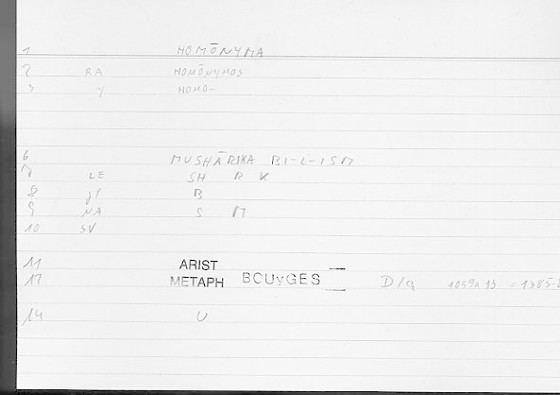 1 HOMŌNYMA
2 RA HOMŌNYMOS
3 y HOMO-
6 MUSHĀRIKA BI-L-ISM
7 LE SH R K
8 B
9 NA S M
10 SV
11 ARIST
12 METAPH BOUyGES D/q
14 U